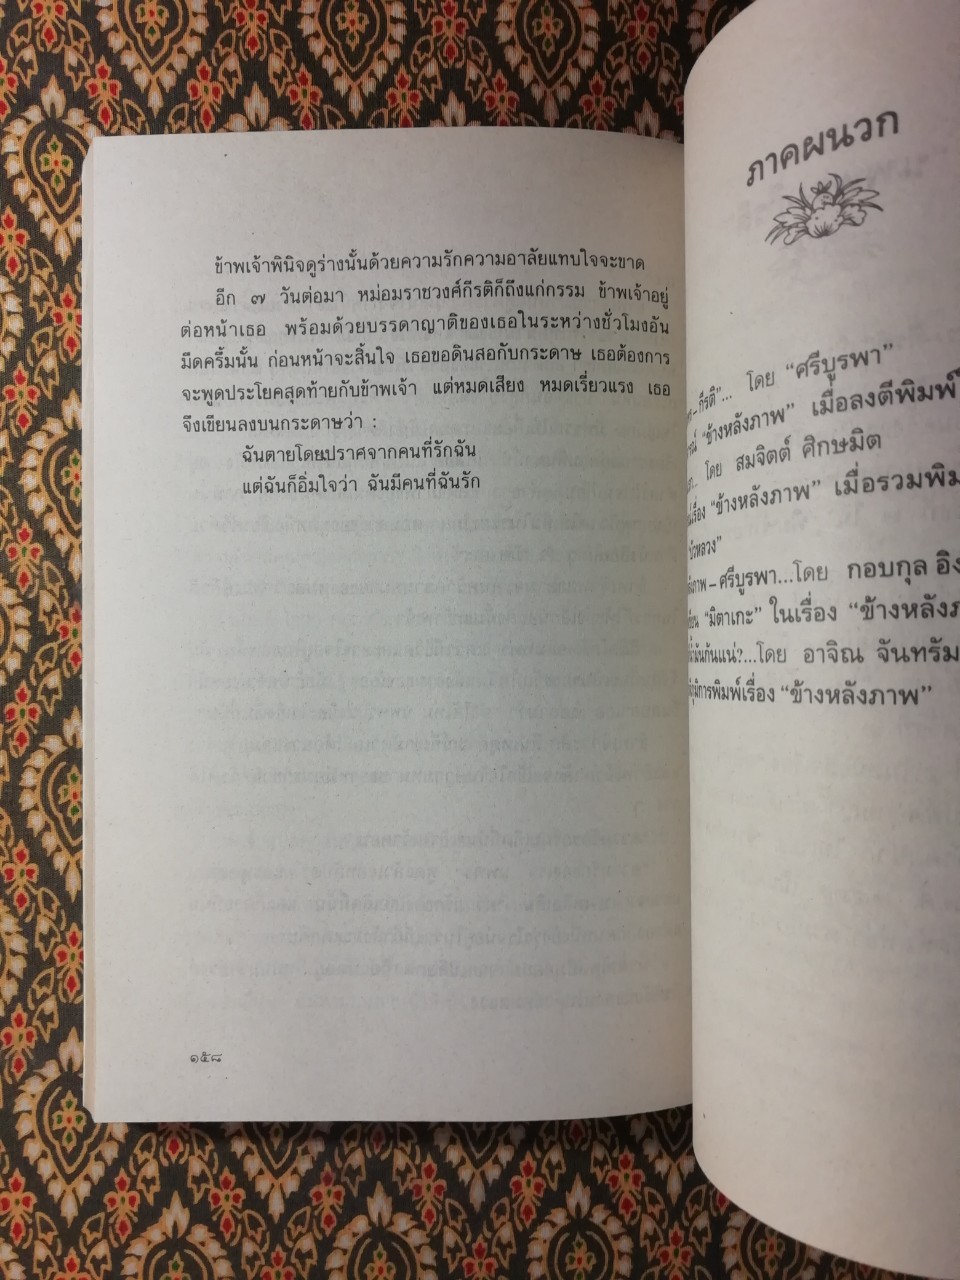 ข้าพเจ้าพินิจดูร่างนั้นด้วยความรักความอาลัยแทบใจจะขาด
อีก ๗ วันต่อมา หม่อมราชวงศ์กีรติก็ถึงแก่กรรม ข้าพเจ้าอยู่
ต่อหน้าเธอ พร้อมด้วยบรรดาญาติของเธอในระหว่างชั่วโมงอัน
มืดครึ้มนั้น ก่อนหน้าจะสิ้นใจ เธอขอดินสอกับกระดาษ เธอต้องการ
จะพูดประโยคสุดท้ายกับข้าพเจ้า แต่หมดเสียง หมดเรี่ยวแรง เธอ
จึงเขียนลงบนกระดาษว่า :
ฉันตายโดยปราศจากคนที่รักฉัน
แต่ฉันก็อิ่มใจว่า ฉันมีคนที่ฉันรัก
๑๕๘
ภาคผนวก
–กีรติ"... โดย "ศรีบูรพา"
"ข้างหลังภาพ" เมื่อลงตีพิมพ์
โดย สมจิตต์ ศิกษมิต
เรื่อง "ข้างหลังภาพ" เมื่อรวมพิม
บัวหลวง"
ภาพ–ศรีบูรพา...โดย กอบกุล อิง
"มิตาเกะ" ในเรื่อง "ข้างหลังภ
กันแน่?...โดย อาจิณ จันทรัม
การพิมพ์เรื่อง "ข้างหลังภาพ"